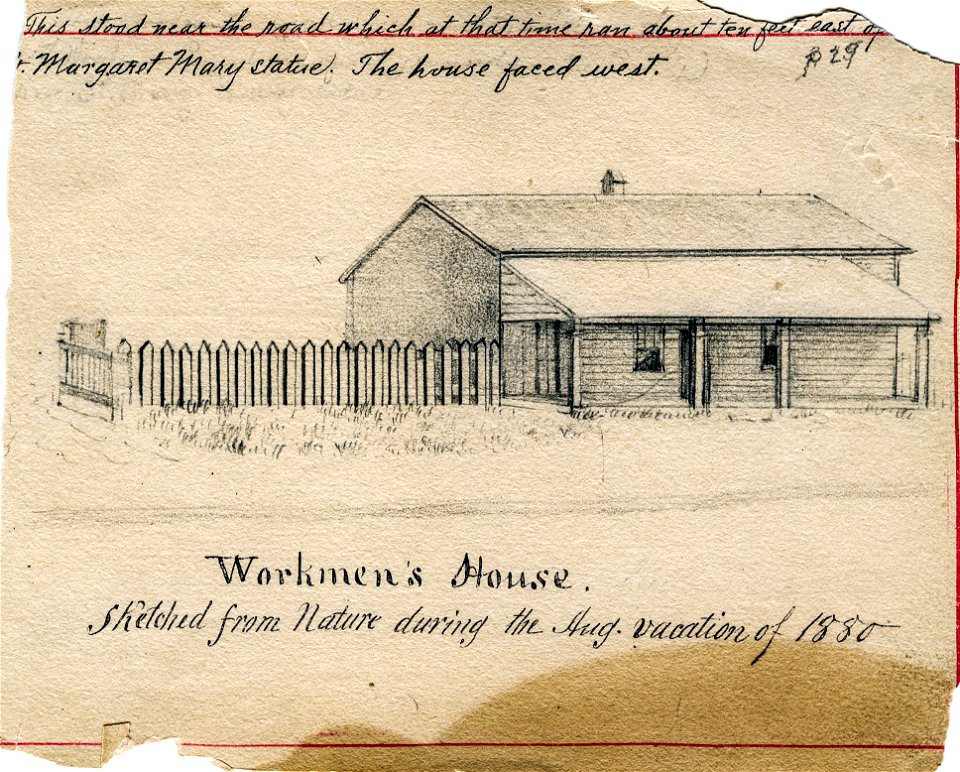 This stood near the road which at that time ran about ten feet east of
t. Margaret Mary statue. The house faced west. p 29
Workmen's House.
Sketched from Nature during the Aug. vacation of 1880